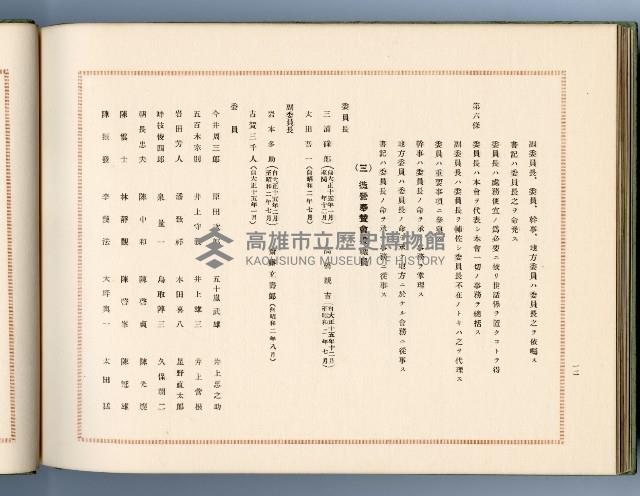 副委員長、委員、幹事、地方委員ハ委員長之ヲ依囑ス
書記ハ委員長之ヲ命免ス
委員長ハ處務便宜ノ爲必要ニ依リ世話係ヲ置クコトヲ得
第六條 委員長ハ本會ヲ代表シ本會一切ノ事務ヲ總括ス
副委員長ハ委員長ヲ補佐シ委員長不在ノトキハ之ヲ代理ス
委員ハ重要事項ニ參
幹事ハ委員長ノ命ヲ承ケ事務ヲ掌理ス
地方委員ハ委員長ノ命ヲ承ケ地方ニ於テル會務ニ從事ス
書記ハ委員長ノ命ヲ承ケ事務ニ從事ス
(三) 造營奉贊會
委員長
三浦碌郎
太田吾一 (自昭和二年七月)
副委員長
岩本多助 (自大正十五年二月 至昭和二年七月) 立 郎 (自昭和二年八月)
古賀三千人 (自大正十五年一月)
委員
今井周三郎 原田 五十嵐武雄 井上忠之助
五百木宗則 井上守 井上雄三 井上啻根
岩田芳人 潘致祥 本田喜八 星野直太郎
時枝俊四郎 泉量一 鳥取陣三 久保朝二
朝長忠夫 陳中和 陳啓貞 陳光燦
陳鑑士 林靜觀 陳啓峯 陳冠雄
陳振發 李 法 大坪與一 太田猛
一二
高雄市立歷史博物館
KAOHSIUNG MUSEUM OF HISTORY